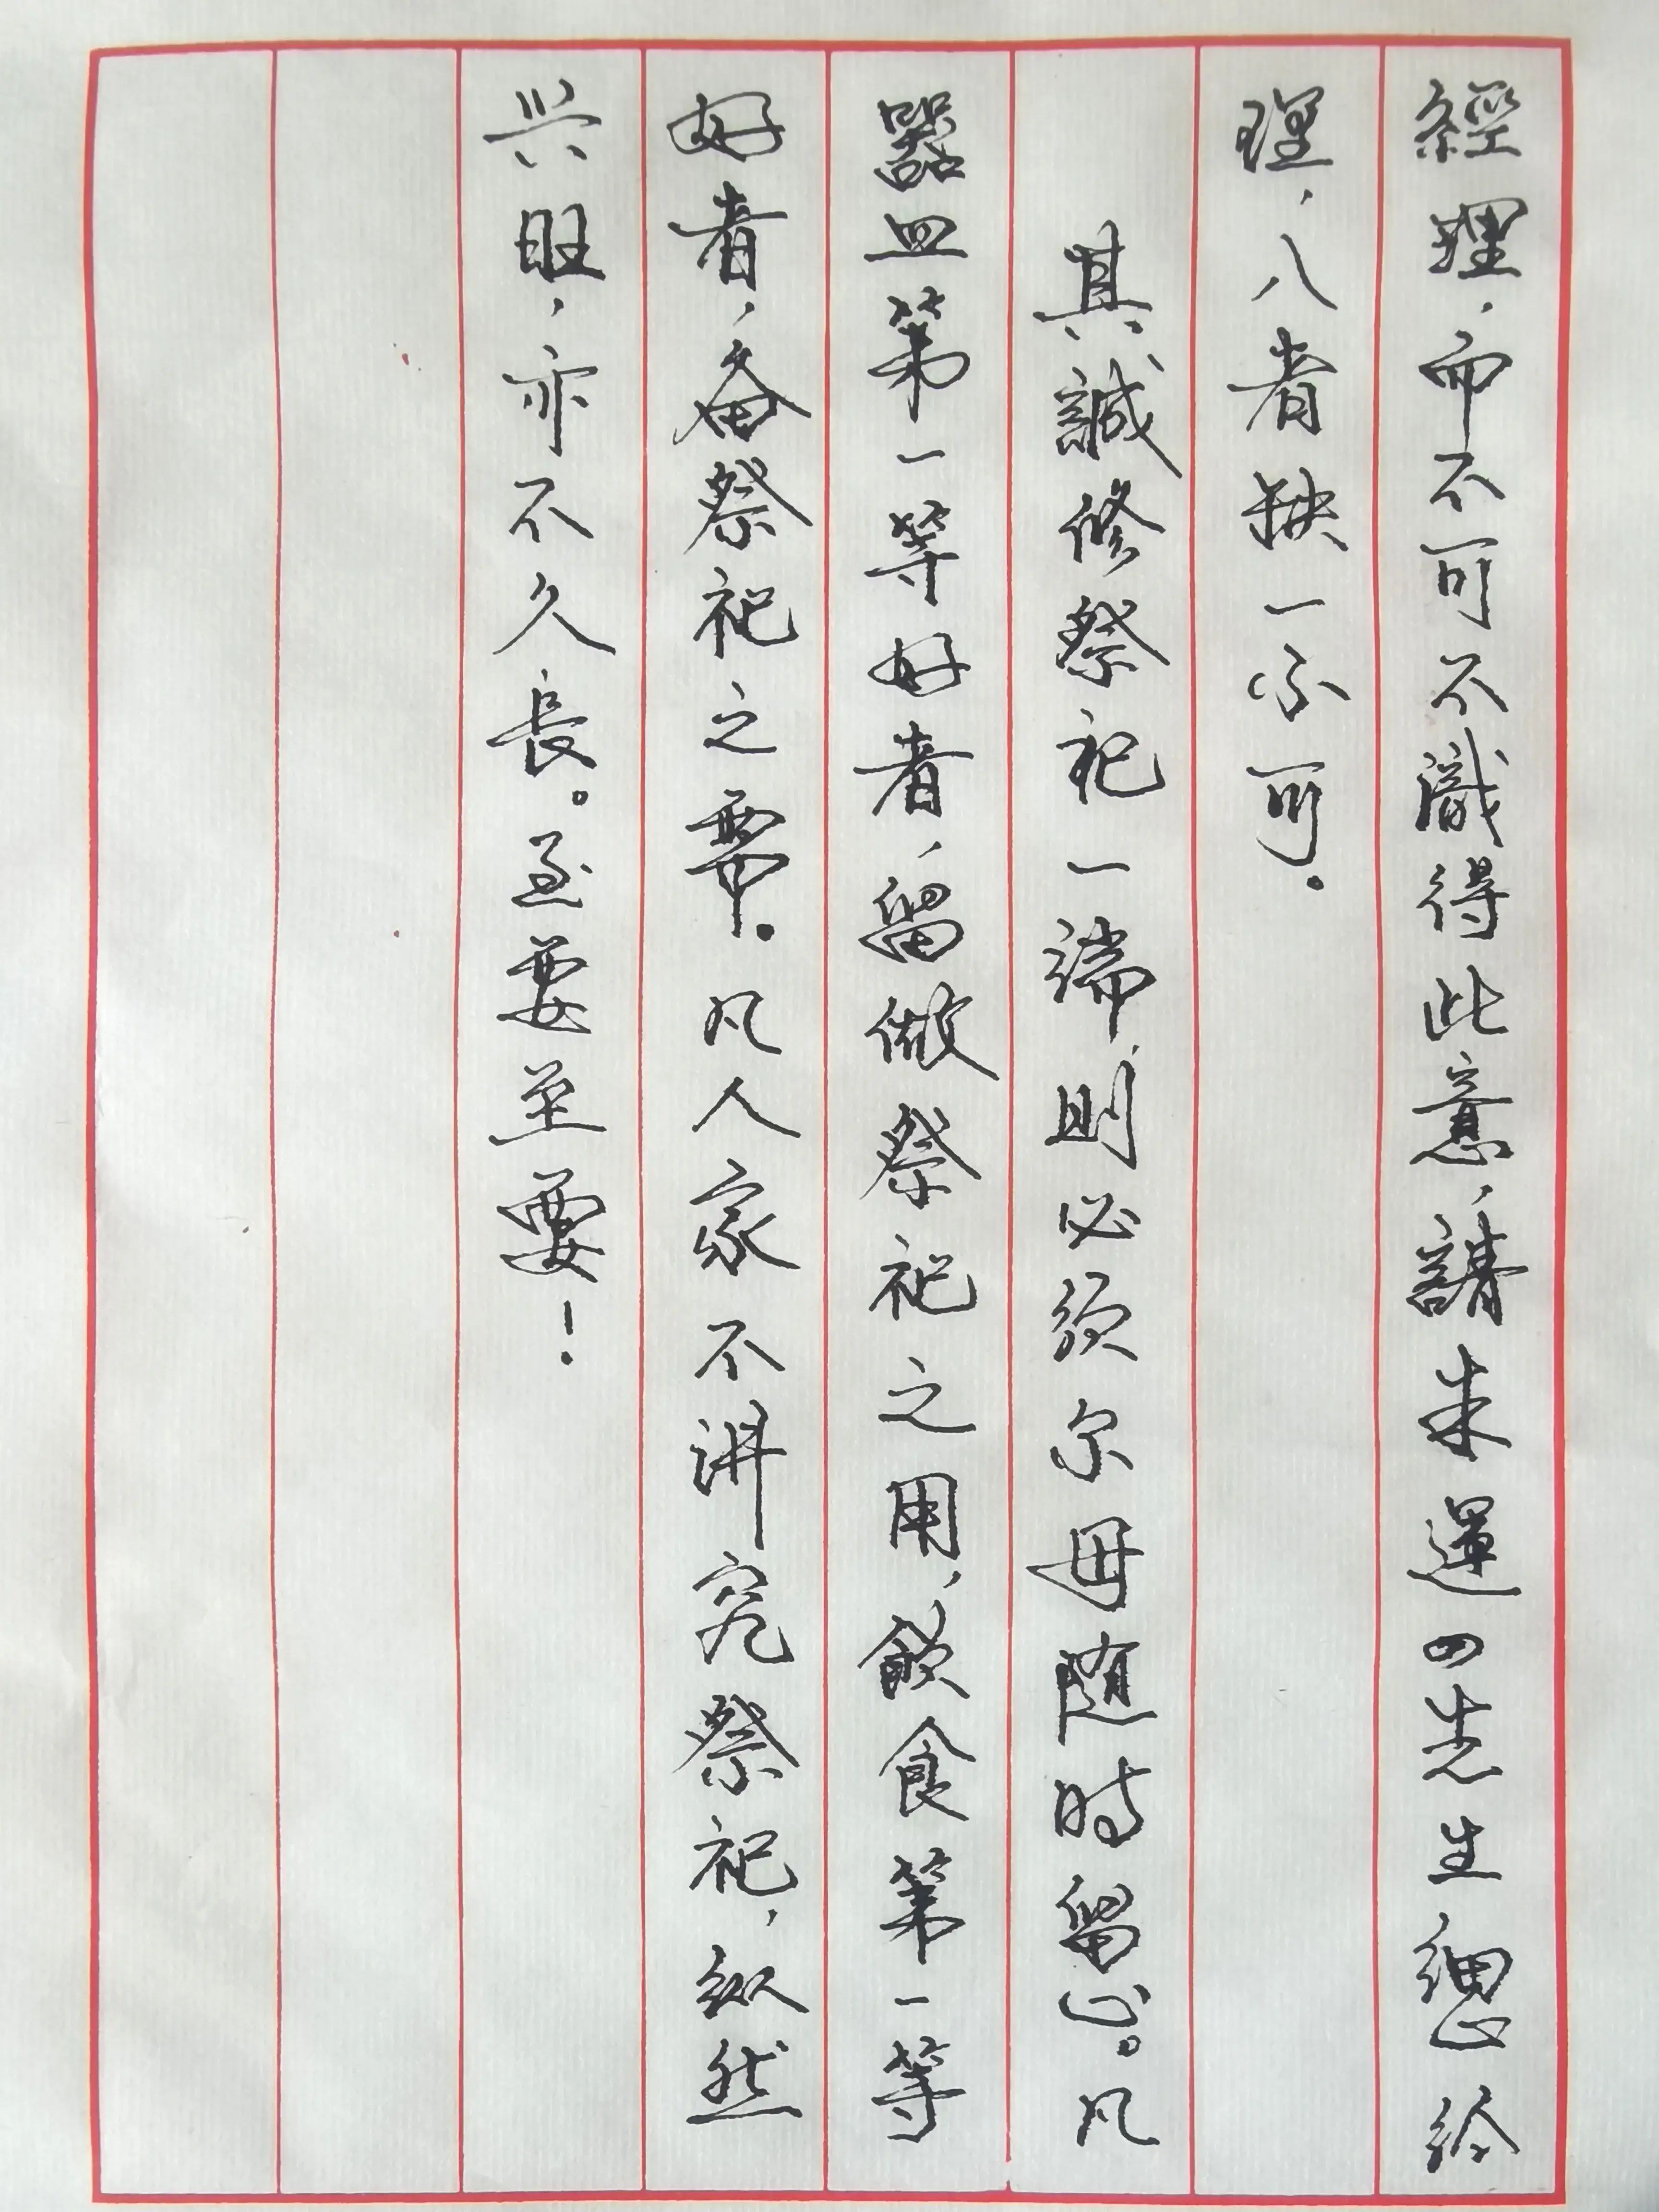 經理，而不可不識得此意，請朱運四先生細心給
理，八者缺一不可。
其誠修祭祀一端，則必须尔母随時留心。凡
器皿第一等好者，留做祭祀之用，飲食第一等
好者，备祭祀之需。凡人家不讲究祭祀，纵然
兴旺，亦不久長。至要至要！